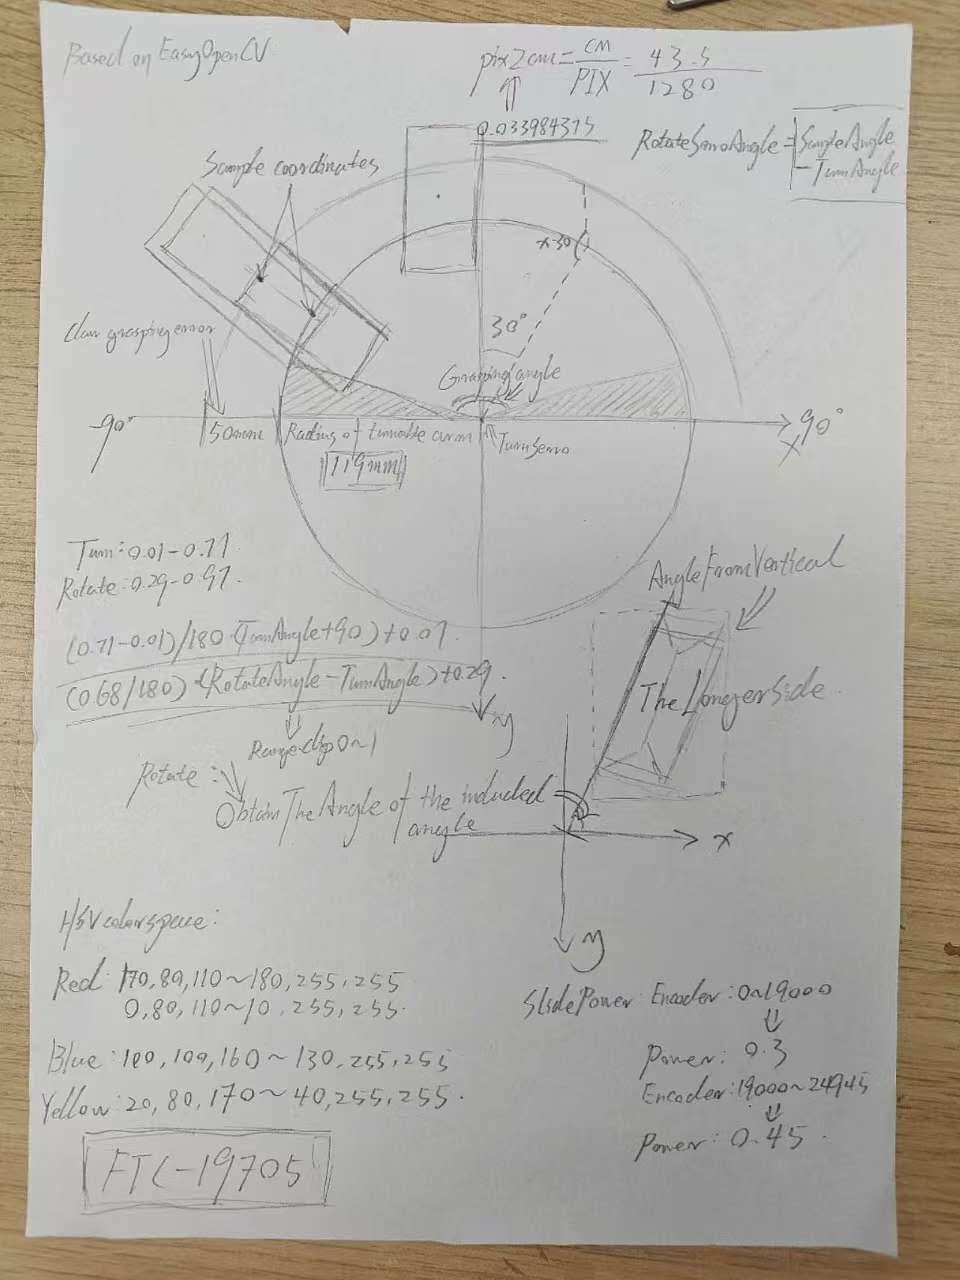 Based on EasyOpenCV
pix2cm = CM/PIX = 43.5/1280
0.033984375
RotateServoAngle = SampleAngle
- TurnAngle
Sample coordinates
x30
30°
Claw grasping error
Grasping angle
-90°
90°
x
50mm
Radius of turnable arm
119mm
TurnServo
Turn: 0.01-0.71
Rotate: 0.29-0.97
(0.71-0.01)/180·(TurnAngle+90)+0.01.
(0.68/180)·(RotateAngle-TurnAngle)+0.29.
y
Range.clip 0~1
Rotate:
Obtain The Angle of the included
angle
AngleFromVertical
The Longer side.
x
y
HSV colorspace:
Red: 170,80,110~180,255,255
0,80,110~10,255,255.
Blue: 100,100,160~130,255,255
Yellow: 20,80,170~40,255,255.
SlidePower: Encoder: 0~19000
Power: 0.3
Encoder: 19000~24945
Power: 0.45.
FTC-19705